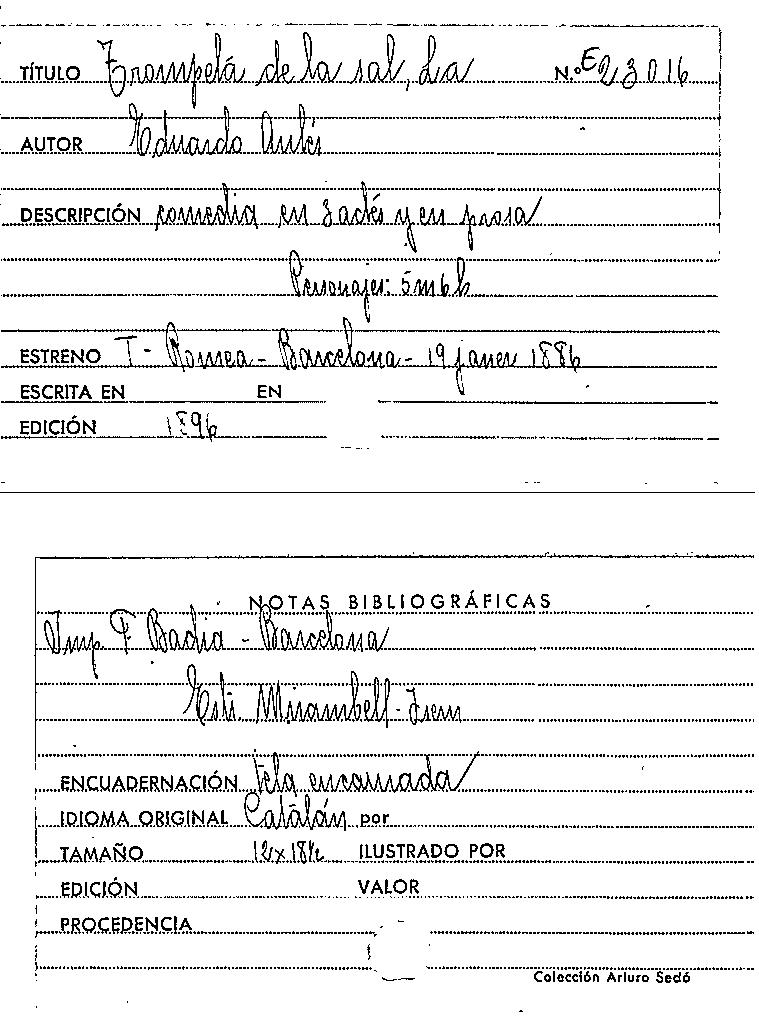 TÍTULO Trompetá de la sal, La N.º E23016
AUTOR Eduardo Aulés
DESCRIPCIÓN comedia en 3 actes y en prosa
Personajes: 5m 6h
ESTRENO T- Romea - Barcelona - 19 janer 1886
ESCRITA EN EN
EDICIÓN 1896
NOTAS BIBLIOGRÁFICAS
Imp. F. Badia - Barcelona
Mirambell
ENCUADERNACIÓN tela encarnada
IDIOMA ORIGINAL Catalán por
TAMAÑO 12x18½ ILUSTRADO POR
EDICIÓN VALOR
PROCEDENCIA
Colección Arturo Sedó